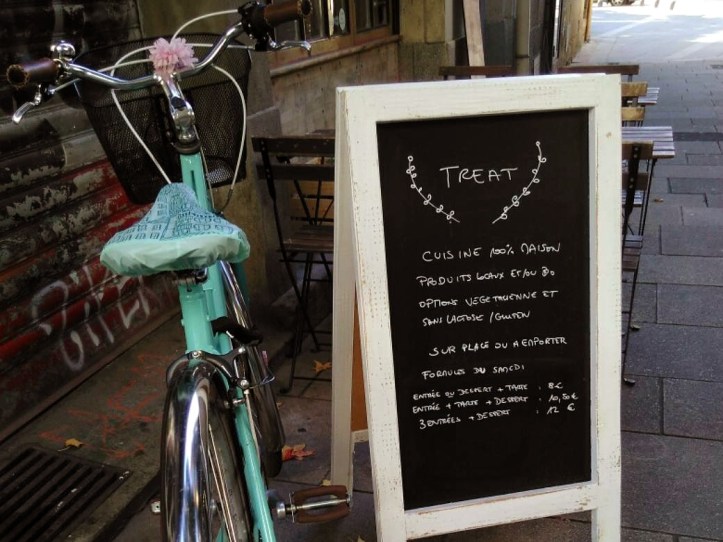 TREAT
CUISINE 100% MAISON
PRODUITS LOCAUX ET/OU BIO
OPTIONS VEGETARIENNE ET
SANS LACTOSE / GLUTEN
SUR PLACE OU A EMPORTER
FORMULES DU SAMEDI
ENTRÉE OU DESSERT + TARTE : 8€
ENTRÉE + TARTE + DESSERT : 10,50€
3 ENTRÉES + DESSERT : 12 €